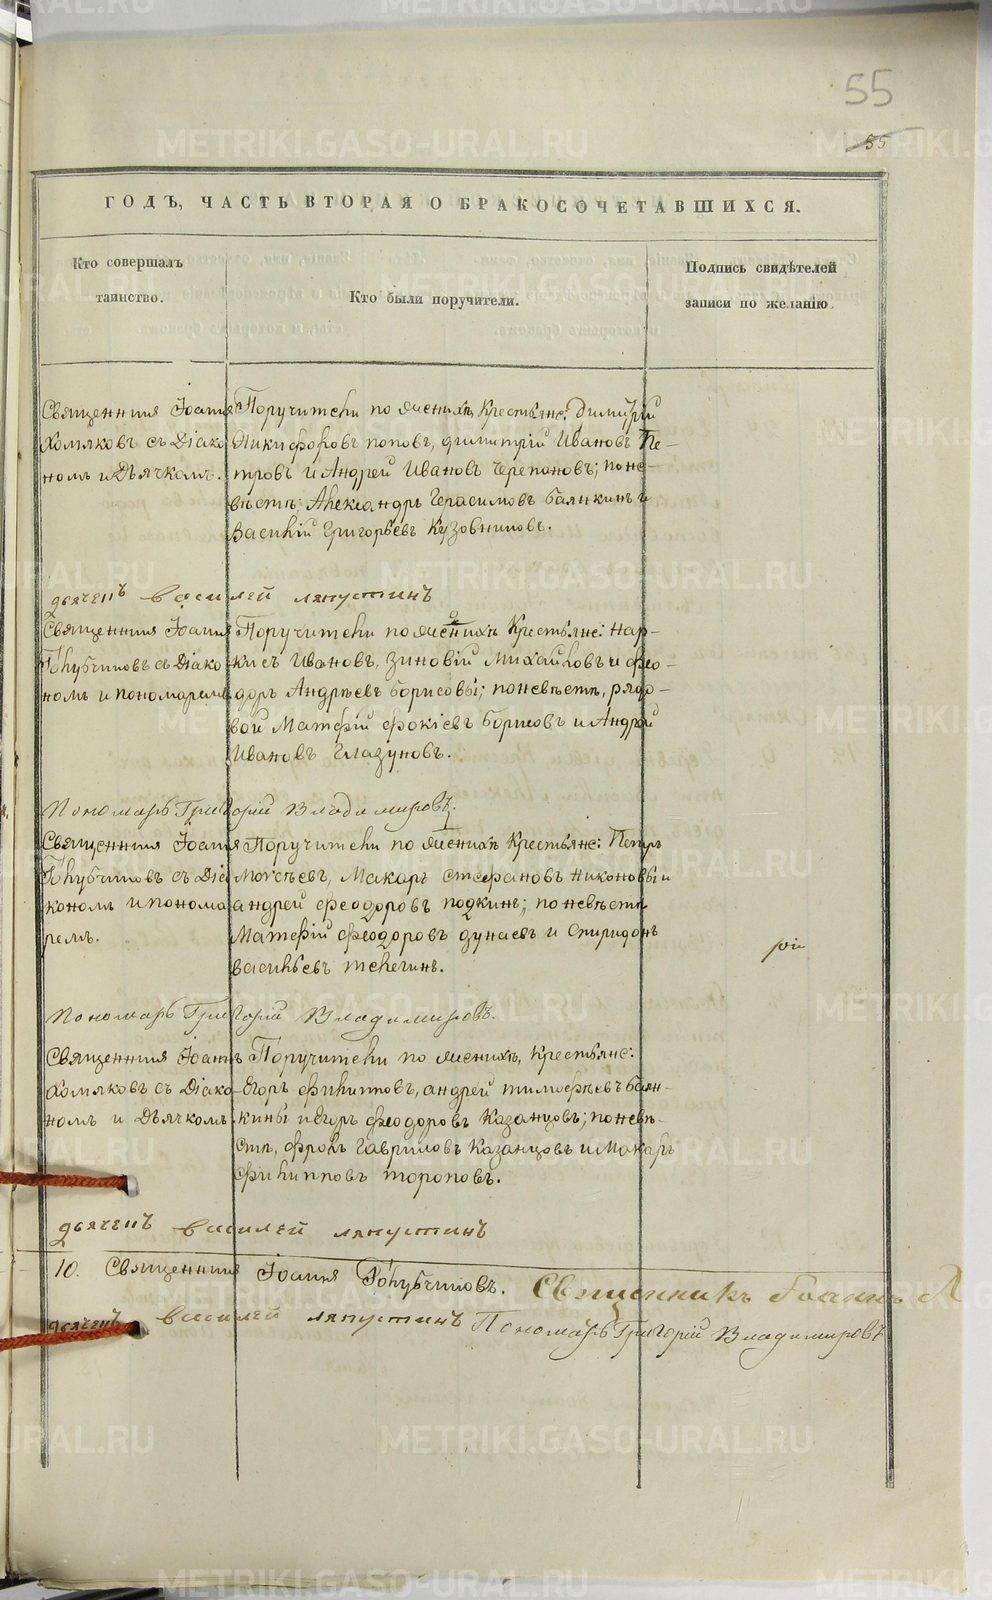 55
55
ГОДЪ, ЧАСТЬ ВТОРАЯ О БРАКОСОЧЕТАВШИХСЯ.
Кто совершалъ
таинство.
Кто были поручители.
Подпись свидѣтелей
записи по желанію.
Священникъ Іоаннъ
Хомяковъ съ Діако
номъ и Дьячкомъ.
Поручители по женихѣ Крестьяне: Димитрій
Никифоровъ поповъ, димитрій Ивановъ Пе-
тровъ и Андрей Ивановъ Черепановъ; по не-
вѣстѣ: Александръ Герасимовъ баянкинъ и
Василій Григорьевъ Кузовниковъ.
дьячекъ василей ляпустинъ
Священникъ Іоаннъ
Голубчиковъ съ Діако
номъ и пономаремъ
Поручители по женихѣ Крестьяне: Мар-
келъ Ивановъ, Зиновій Михайловъ и фео-
доръ Андрѣевъ борисовы; по невѣстѣ, рядо-
вой Матфій фокіевъ борисовъ и Андрей
Ивановъ Глазуновъ.
Пономарь Григорій Владимировъ.
Священникъ Іоаннъ
Голубчиковъ съ Діа
кономъ и понома
ремъ.
Поручители по женихѣ Крестьяне: Петръ
Моисѣевъ, Макаръ Стефановъ Никоновы и
андрей феодоровъ подкинъ; по невѣстѣ
Матфій феодоровъ дунаевъ и Спиридонъ
васильевъ телегинъ.
Пономарь Григорій Владимировъ.
Священникъ Іоаннъ
Хомяковъ съ Діако
номъ и Дьячкомъ.
Поручители по женихѣ, Крестьяне:
Егоръ филиповъ, андрей тимофѣевъ баян-
кины и егоръ феодоровъ Казанцовъ; по невѣ-
стѣ, фролъ Гавриловъ Казанцовъ и Макаръ
филипповъ тороповъ.
дьячекъ василей ляпустинъ
10. Священникъ Іоаннъ Голубчиковъ. Священникъ Іоаннъ
дьячекъ василей ляпустинъ Пономарь Григорій Владимировъ
METRIKI.GASO-URAL.RU